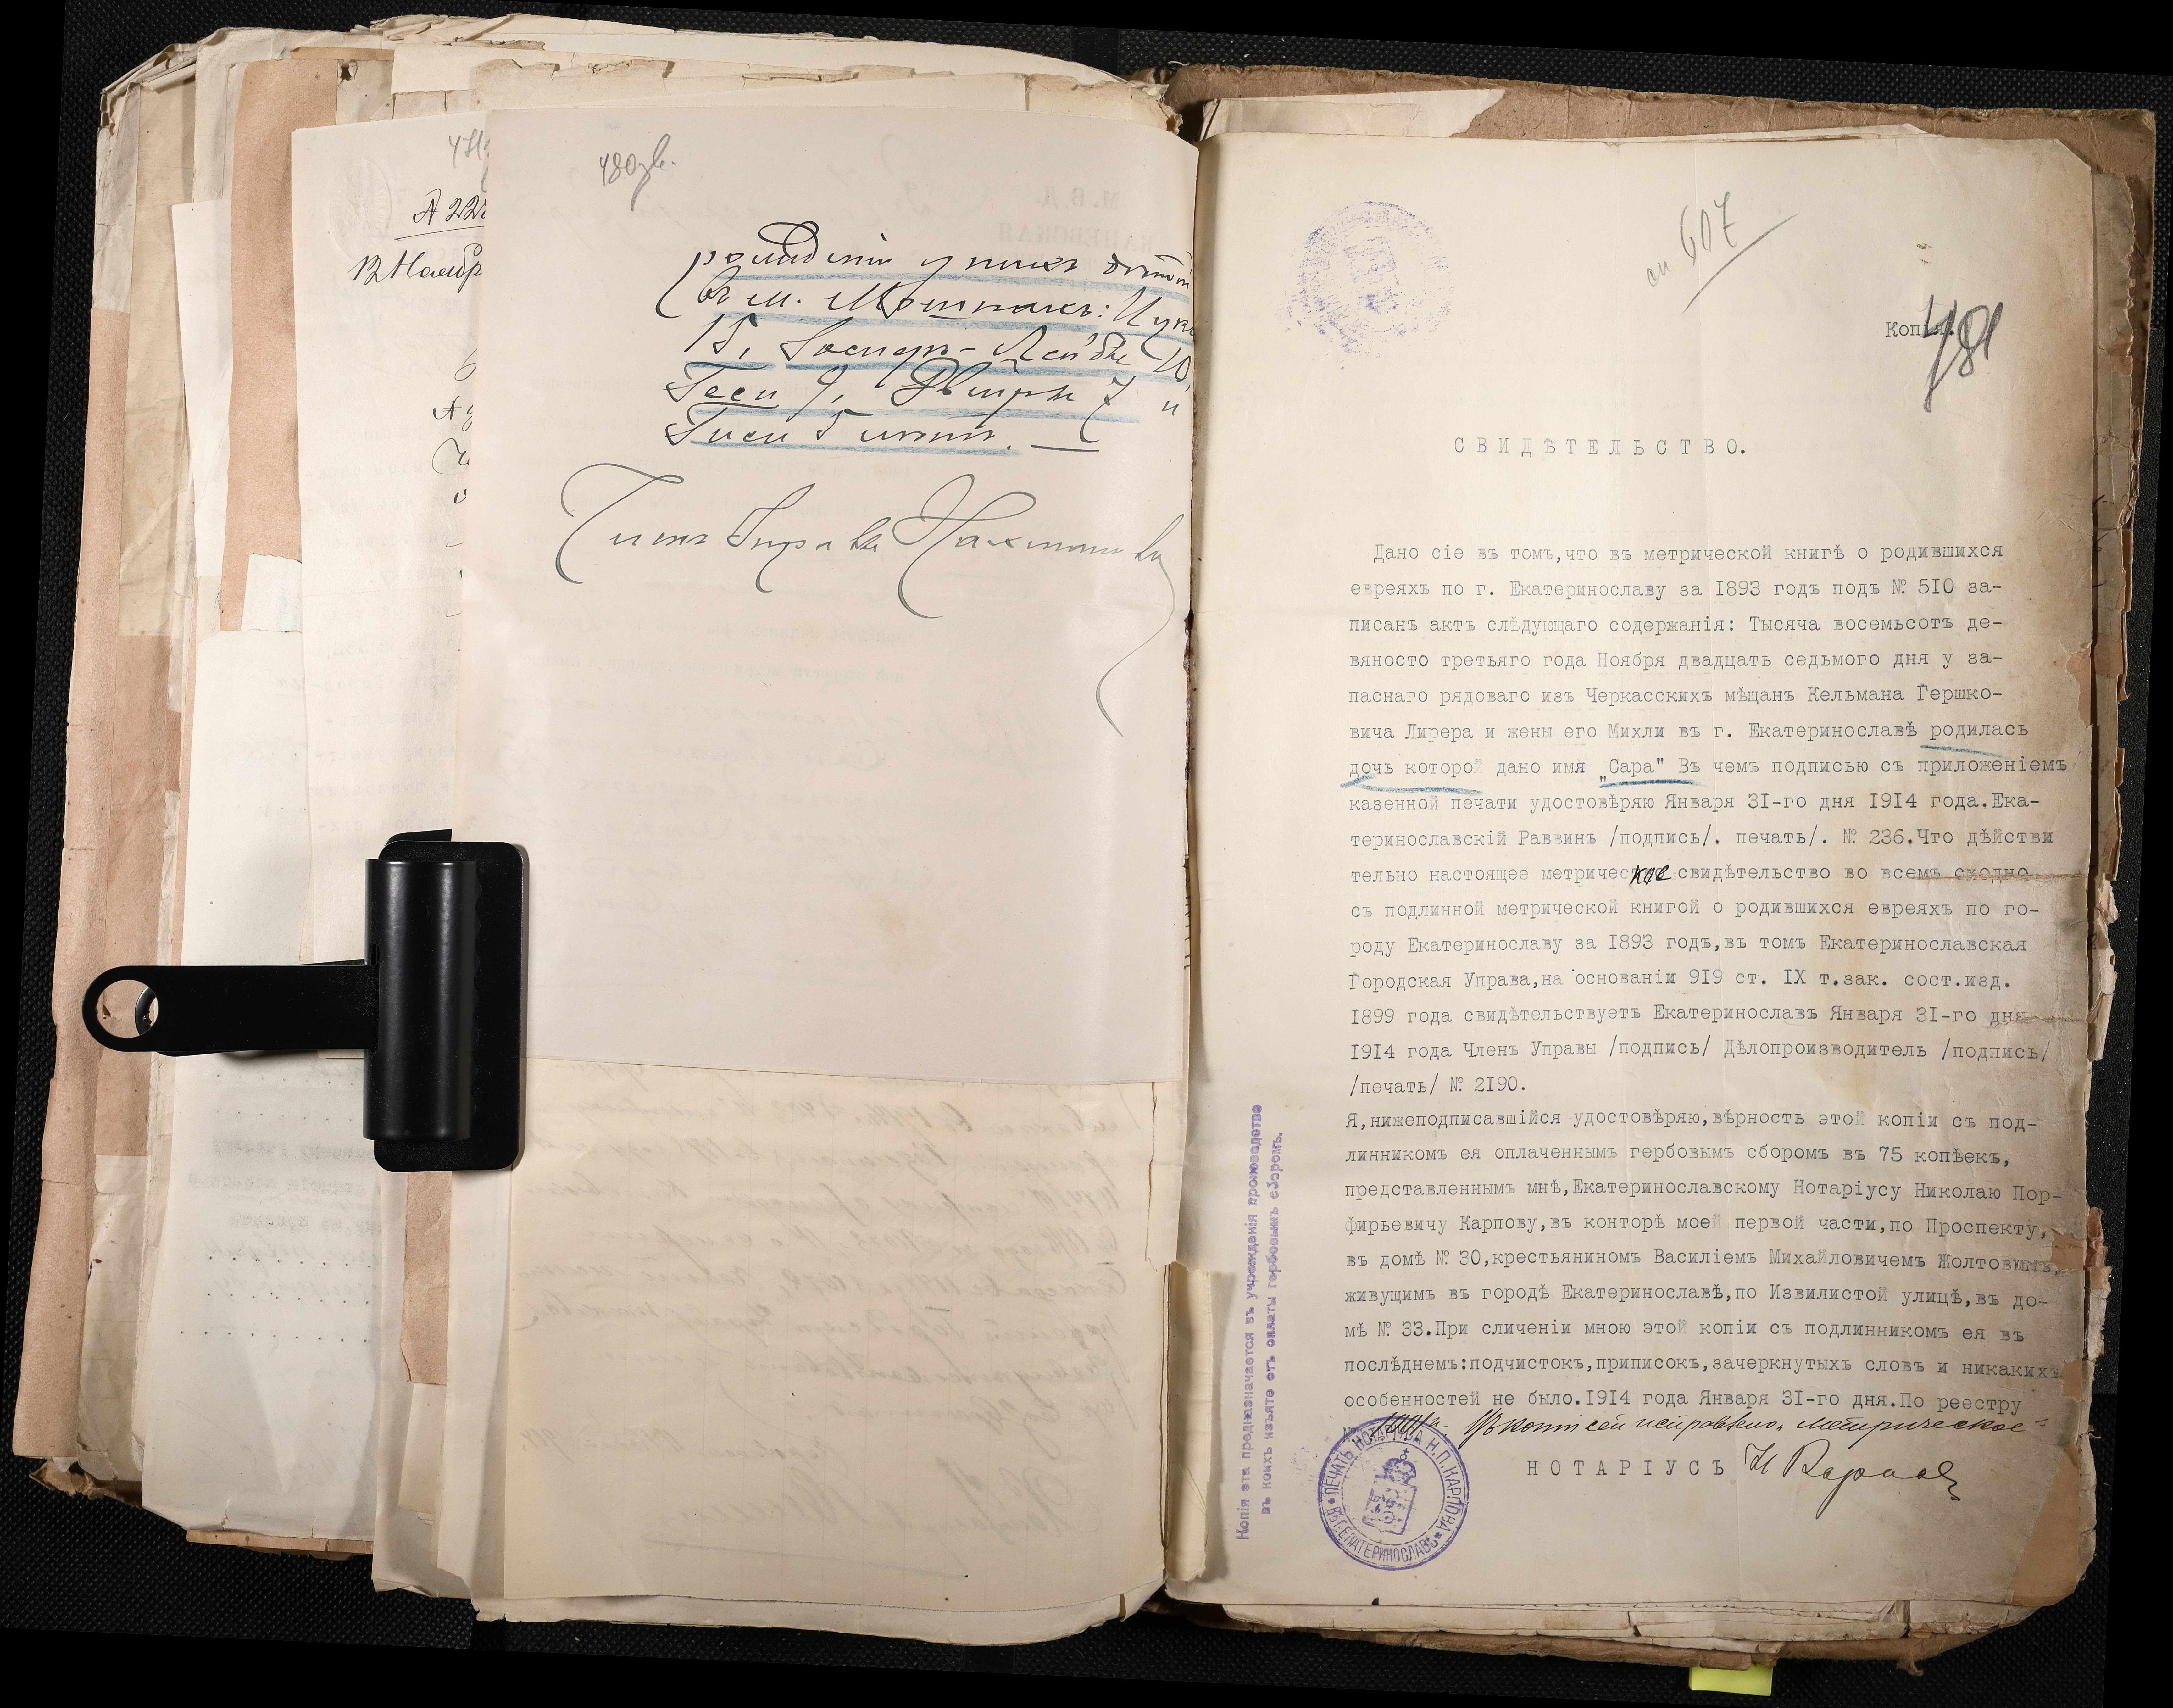 480 об.
рожденіи у нихъ дѣтей
въ м. Мошнахъ:
15, Лейбы 10,
Геси 9, Двойры 7 и
Гиси 5 лѣтъ.
А 222
12 Ноябр
607
Копія.
481
СВИДѢТЕЛЬСТВО.
Дано сіе въ томъ,что въ метрической книгѣ о родившихся
евреяхъ по г. Екатеринославу за 1893 годъ подъ № 510 за-
писанъ актъ слѣдующаго содержанія: Тысяча восемьсотъ де-
вяносто третьяго года Ноября двадцать седьмого дня у за-
паснаго рядоваго изъ Черкасскихъ мѣщанъ Кельмана Гершко-
вича Лирера и жены его Михли въ г. Екатеринославѣ родилась
дочь которой дано имя „Сара" Въ чемъ подписью съ приложеніемъ
казенной печати удостовѣряю Января 31-го дня 1914 года.Ека-
теринославскій Раввинъ /подпись/. печать/. № 236.Что дѣйстви
тельно настоящее метрическое свидѣтельство во всемъ сходно
съ подлинной метрической книгой о родившихся евреяхъ по го-
роду Екатеринославу за 1893 годъ,въ томъ Екатеринославская
Городская Управа,на основаніи 919 ст. IX т.зак. сост.изд.
1899 года свидѣтельствуетъ Екатеринославъ Января 31-го дня
1914 года Членъ Управы /подпись/ Дѣлопроизводитель /подпись/
/печать/ № 2190.
Я,нижеподписавшійся удостовѣряю,вѣрность этой копіи съ под-
линникомъ ея оплаченнымъ гербовымъ сборомъ въ 75 копѣекъ,
представленнымъ мнѣ,Екатеринославскому Нотаріусу Николаю Пор-
фирьевичу Карпову,въ конторѣ моей первой части,по Проспекту,
въ домѣ № 30,крестьяниномъ Василіемъ Михайловичемъ Жолтовымъ,
живущимъ въ городѣ Екатеринославѣ,по Извилистой улицѣ,въ до-
мѣ № 33.При сличеніи мною этой копіи съ подлинникомъ ея въ
послѣднемъ:подчистокъ,приписокъ,зачеркнутыхъ словъ и никакихъ
особенностей не было.1914 года Января 31-го дня.По реестру
Въ копіи сей исправлено: метрическое
НОТАРІУСЪ Н Карповъ
ПЕЧАТЬ НОТАРІУСА Н.П.КАРПОВА ВЪ Г.ЕКАТЕРИНОСЛАВѢ
Копія эта предназначается въ учрежденія производство
въ коихъ изъято отъ оплаты гербовымъ сборомъ.